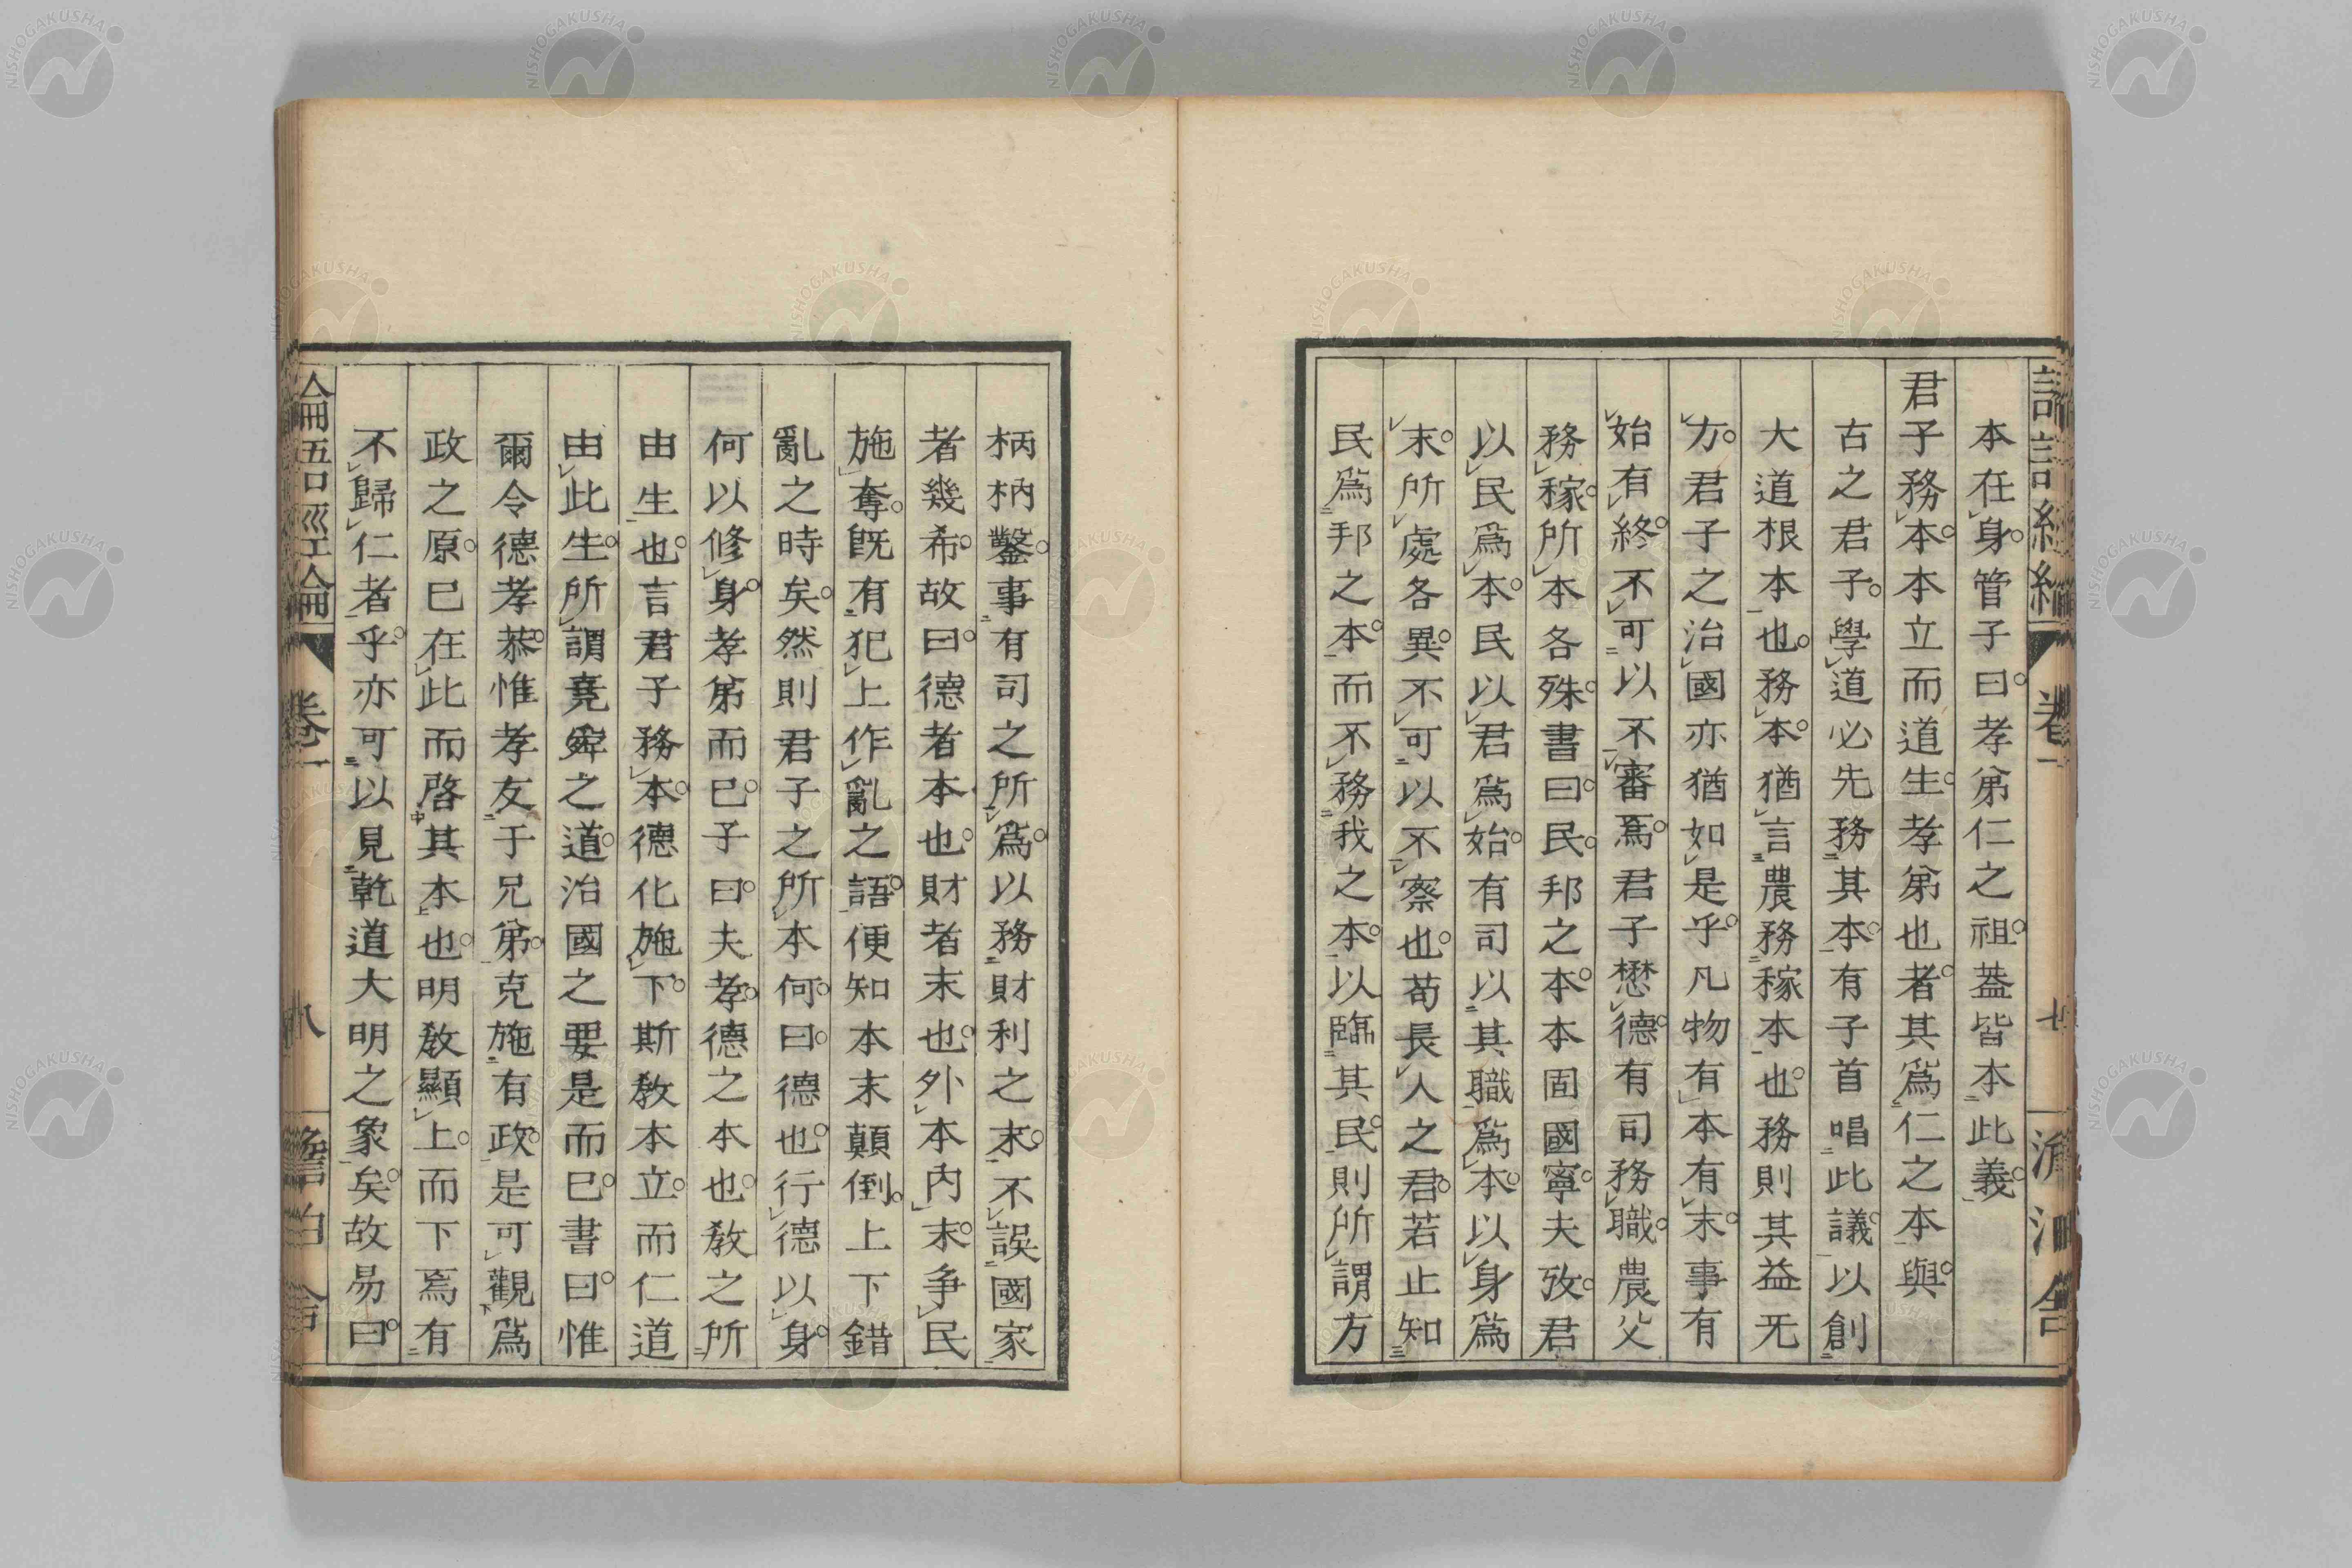 本在身。管子曰。孝弟仁之祖。蓋皆本此義。
君子務本。本立而道生。孝弟也者。其爲仁之本與。
古之君子。學道必先務其本。有子首唱此議。以創
大道根本也。務本。猶言農務稼本也。務則其益无
方。君子之治國亦猶如是乎。凡物有本有末。事有
始有終。不可以不審焉。君子懋德。有司務職。農父
務稼。所本各殊。書曰。民。邦之本。本固國寧。夫攷。君
以民爲本。民以君爲始。有司以其職爲本。以身爲
末。所處各異。不可以不察也。苟長人之君。若止知
民爲邦之本。而不務我之本。以臨其民。則所謂方
柄枘鑿。事有司之所爲。以務財利之末。不誤國家
者幾希。故曰。德者本也。財者末也。外本內末。爭民
施奪。既有犯上作亂之語。便知本末顛倒。上下錯
亂之時矣。然則君子之所本何。曰。德也。行德以身。
何以修身。孝弟而已。子曰。夫孝。德之本也。敎之所
由生也。言君子務本。德化施下。斯敎本立。而仁道
由此生。所謂堯舜之道。治國之要是而已。書曰。惟
爾令德孝恭。惟孝友于兄弟。克施有政。是可觀爲
政之原。已在此而啓其本也。明敎顯上。而下焉有
不歸仁者乎。亦可以見乾道大明之象矣。故易曰。
論語經綸 卷一 七
論語經綸 卷一 八